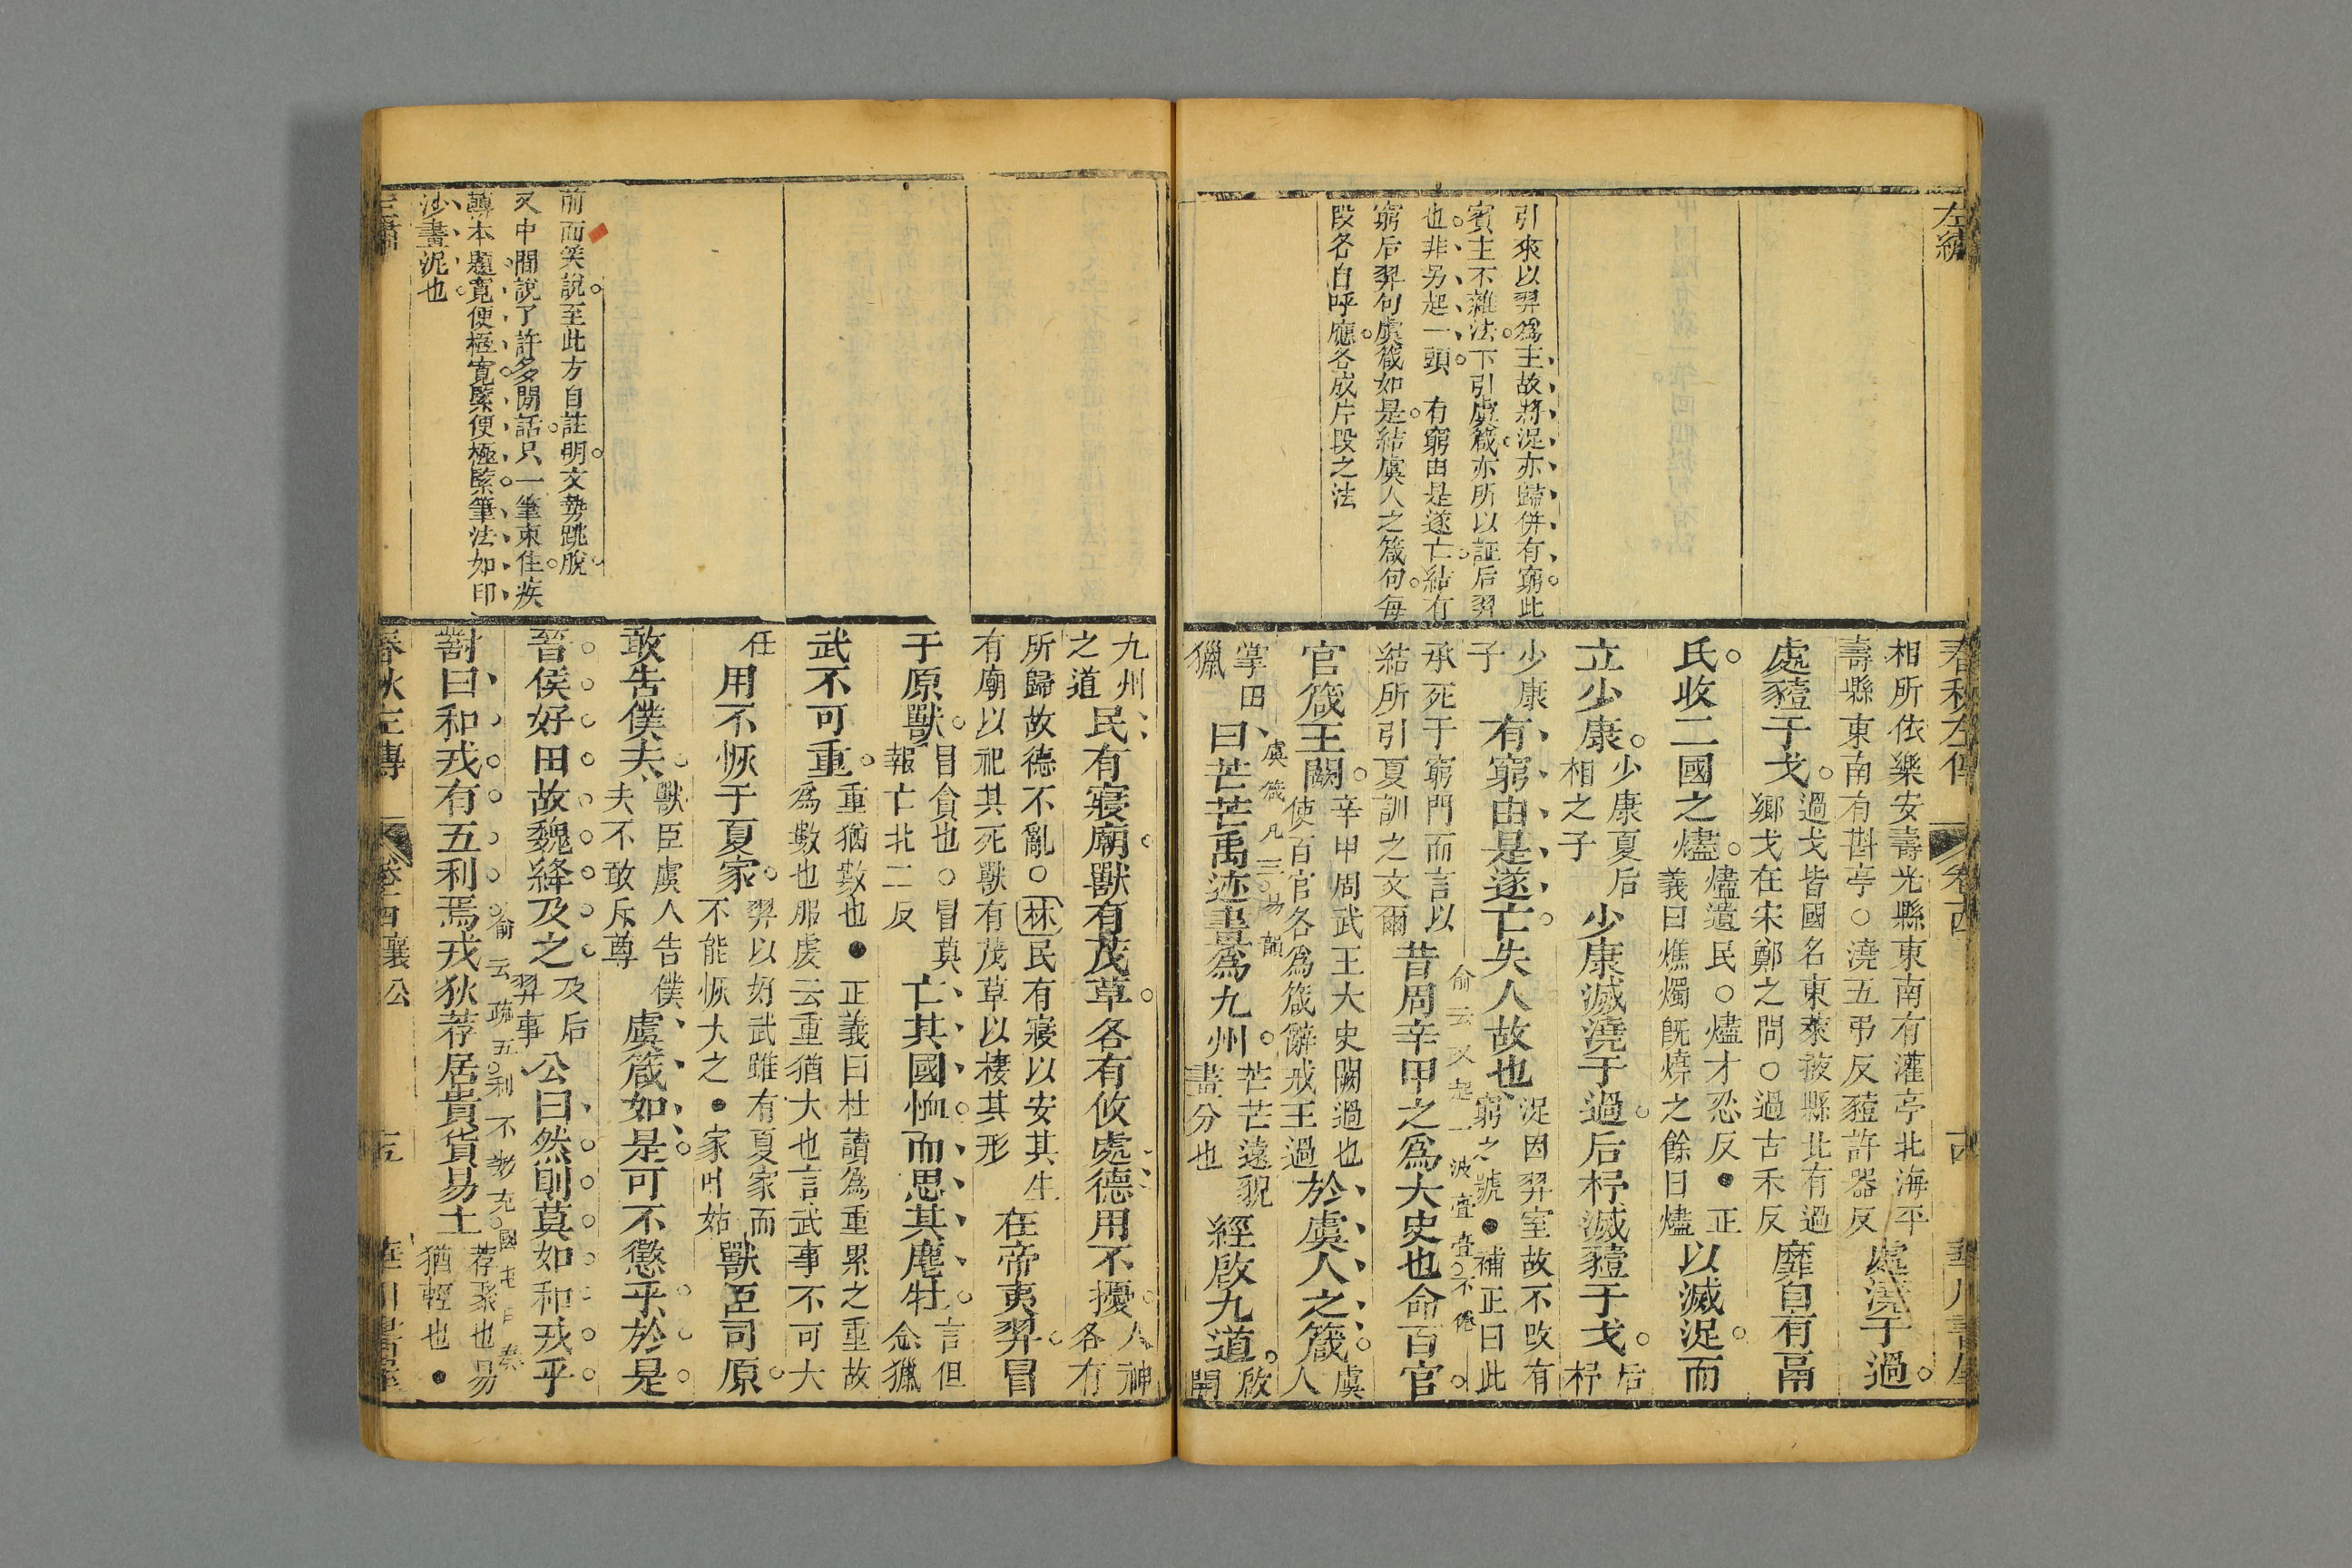 左繡
引來以羿爲主故將浞亦歸併有窮此
賓主不雜法下引虞箴亦所以証后羿
也非另起一頭　有窮由是遂亡結有
窮后羿句虞箴如是結虞人之箴句每
段各自呼應各成片段之法
春秋左傳　卷
相所依樂安壽光縣東南有灌亭北海平
壽縣東南有斟亭○澆五弔反豷許器反
處澆于過
處豷于戈
過戈皆國名東萊掖縣北有過
鄉戈在宋鄭之間○過古禾反
靡自有鬲
氏收二國之燼
燼遺民○燼才忍反●正
義曰燋燭旣燒之餘曰燼
以滅浞而
立少康
少康夏后
相之子
少康滅澆于過后杼滅豷于戈
后
杼
少康
子
有窮由是遂亡失人故也
浞因羿室故不攺有
窮之號●補正曰此
承死于窮門而言以
結所引夏訓之文爾
俞云又起一波疊疊不倦
昔周辛甲之爲大史也命百官
官箴王闕
辛甲周武王大史闕過也
使百官各爲箴辭戒王過
於虞人之箴
虞
人
掌田
獵
虞箴凡三易韻
曰芒芒禹迹畫爲九州
芒芒遠貌
畫分也
經啟九道
啟
開
九州
之道
民有寢廟獸有茂草各有攸處德用不擾
人神
各有
所歸故德不亂○林民有寢以安其生
有廟以祀其死獸有茂草以棲其形
在帝夷羿冒
于原獸
冒貪也○冒莫
報亡北二反
亡其國恤而思其麀牡
言但
念獵
武不可重
重猶數也●正義曰杜讀爲重累之重故
爲數也服虔云重猶大也言武事不可大
任
用不恢于夏家
羿以好武雖有夏家而
不能恢大之●家叶姑
獸臣司原
敢告僕夫
獸臣虞人告僕
夫不敢斥尊
虞箴如是可不懲乎於是
晉侯好田故魏絳及之
及后
羿事
公曰然則莫如和戎乎
對曰和戎有五利焉戎狄荐居貴貨易土
荐聚也易
猶輕也●
前面笑說至此方自註明文勢跳脫
又中間說了許多閒話只一筆束住疾
轉本題寬便極寬緊便極緊筆法如印
沙畫泥也
春秋左傳　襄公